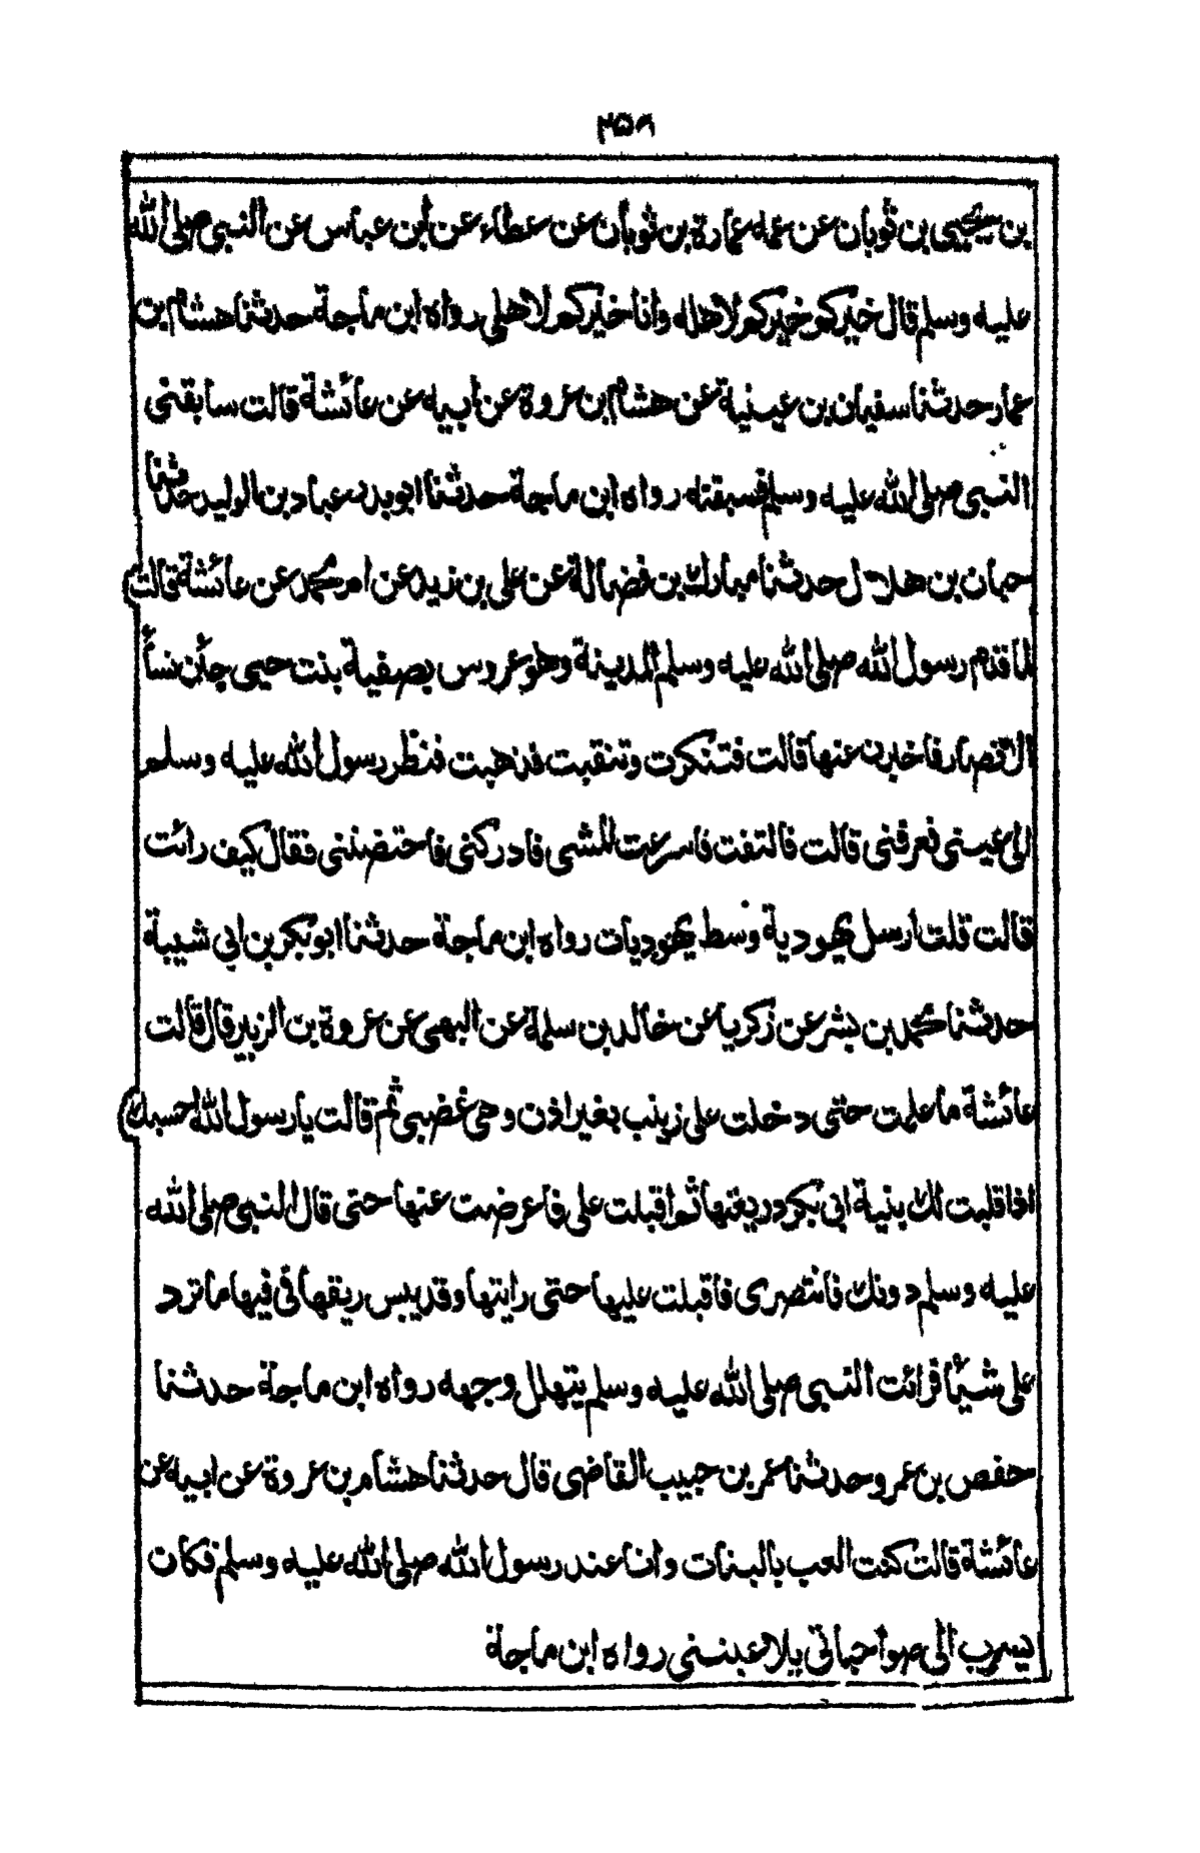 ۳۵۸
بن يحيى بن ثوبان عن عمه عمارة بن ثوبان عن عطاء عن أبن عباس عن النبي صلى الله
عليه وسلم قال خيركم خيركم لاهله وانا خيركم لاهلي رواه ابن ماجة حدثنا هشام بن
عمار حدثنا سفيان بن عيينة عن هشام بن عروة عن ابيه عن عائشة قالت سابقني
النبي صلى الله عليه وسلم فسبقته رواه ابن ماجة حدثنا ابو بدر عباد بن الوليد حدثنا
حبان بن هلال حدثنا مبارك بن فضالة عن علي بن زيد عن ام محمد عن عائشة قالت
لما قدم رسول الله صلى الله عليه وسلم المدينة وهو عروس بصفية بنت حيي جئن نساء
الانصار فاخبرن عنها قالت فتنكرت وتنقبت فذهبت فنظر رسول الله عليه وسلم
الى عيني فعرفني قالت فالتفت فاسرعت المشى فادركني فاحتضنني فقال كيف رائت
قالت قلت ارسل يهودية وسط يهوديات رواه ابن ماجة حدثنا ابو بكر بن ابي شيبة
حدثنا محمد بن بشر عن زكريا عن خالد بن سلمة عن البهى عن عروة بن الزبير قال قالت
عائشة ما علمت حتى دخلت على زينب بغير اذن وهى غضبى ثم قالت يا رسول الله احسبك
اذا قلبت لك بنية ابي بكر ذريعتها ثم اقبلت على فاعرضت عنها حتى قال النبي صلى الله
عليه وسلم دونك فانتصرى فاقبلت عليها حتى رايتها وقد يبس ريقها في فيها ما ترد
على شيئا فرائت النبي صلى الله عليه وسلم يتهلل وجهه رواه ابن ماجة حدثنا
حفص بن عمرو حدثنا عمر بن حبيب القاضى قال حدثنا هشام بن عروة عن ابيه عن
عائشة قالت كنت العب بالبنات وانا عند رسول الله صلى الله عليه وسلم فكان
يسرب الى صواحباتي يلاعبنني رواه ابن ماجة